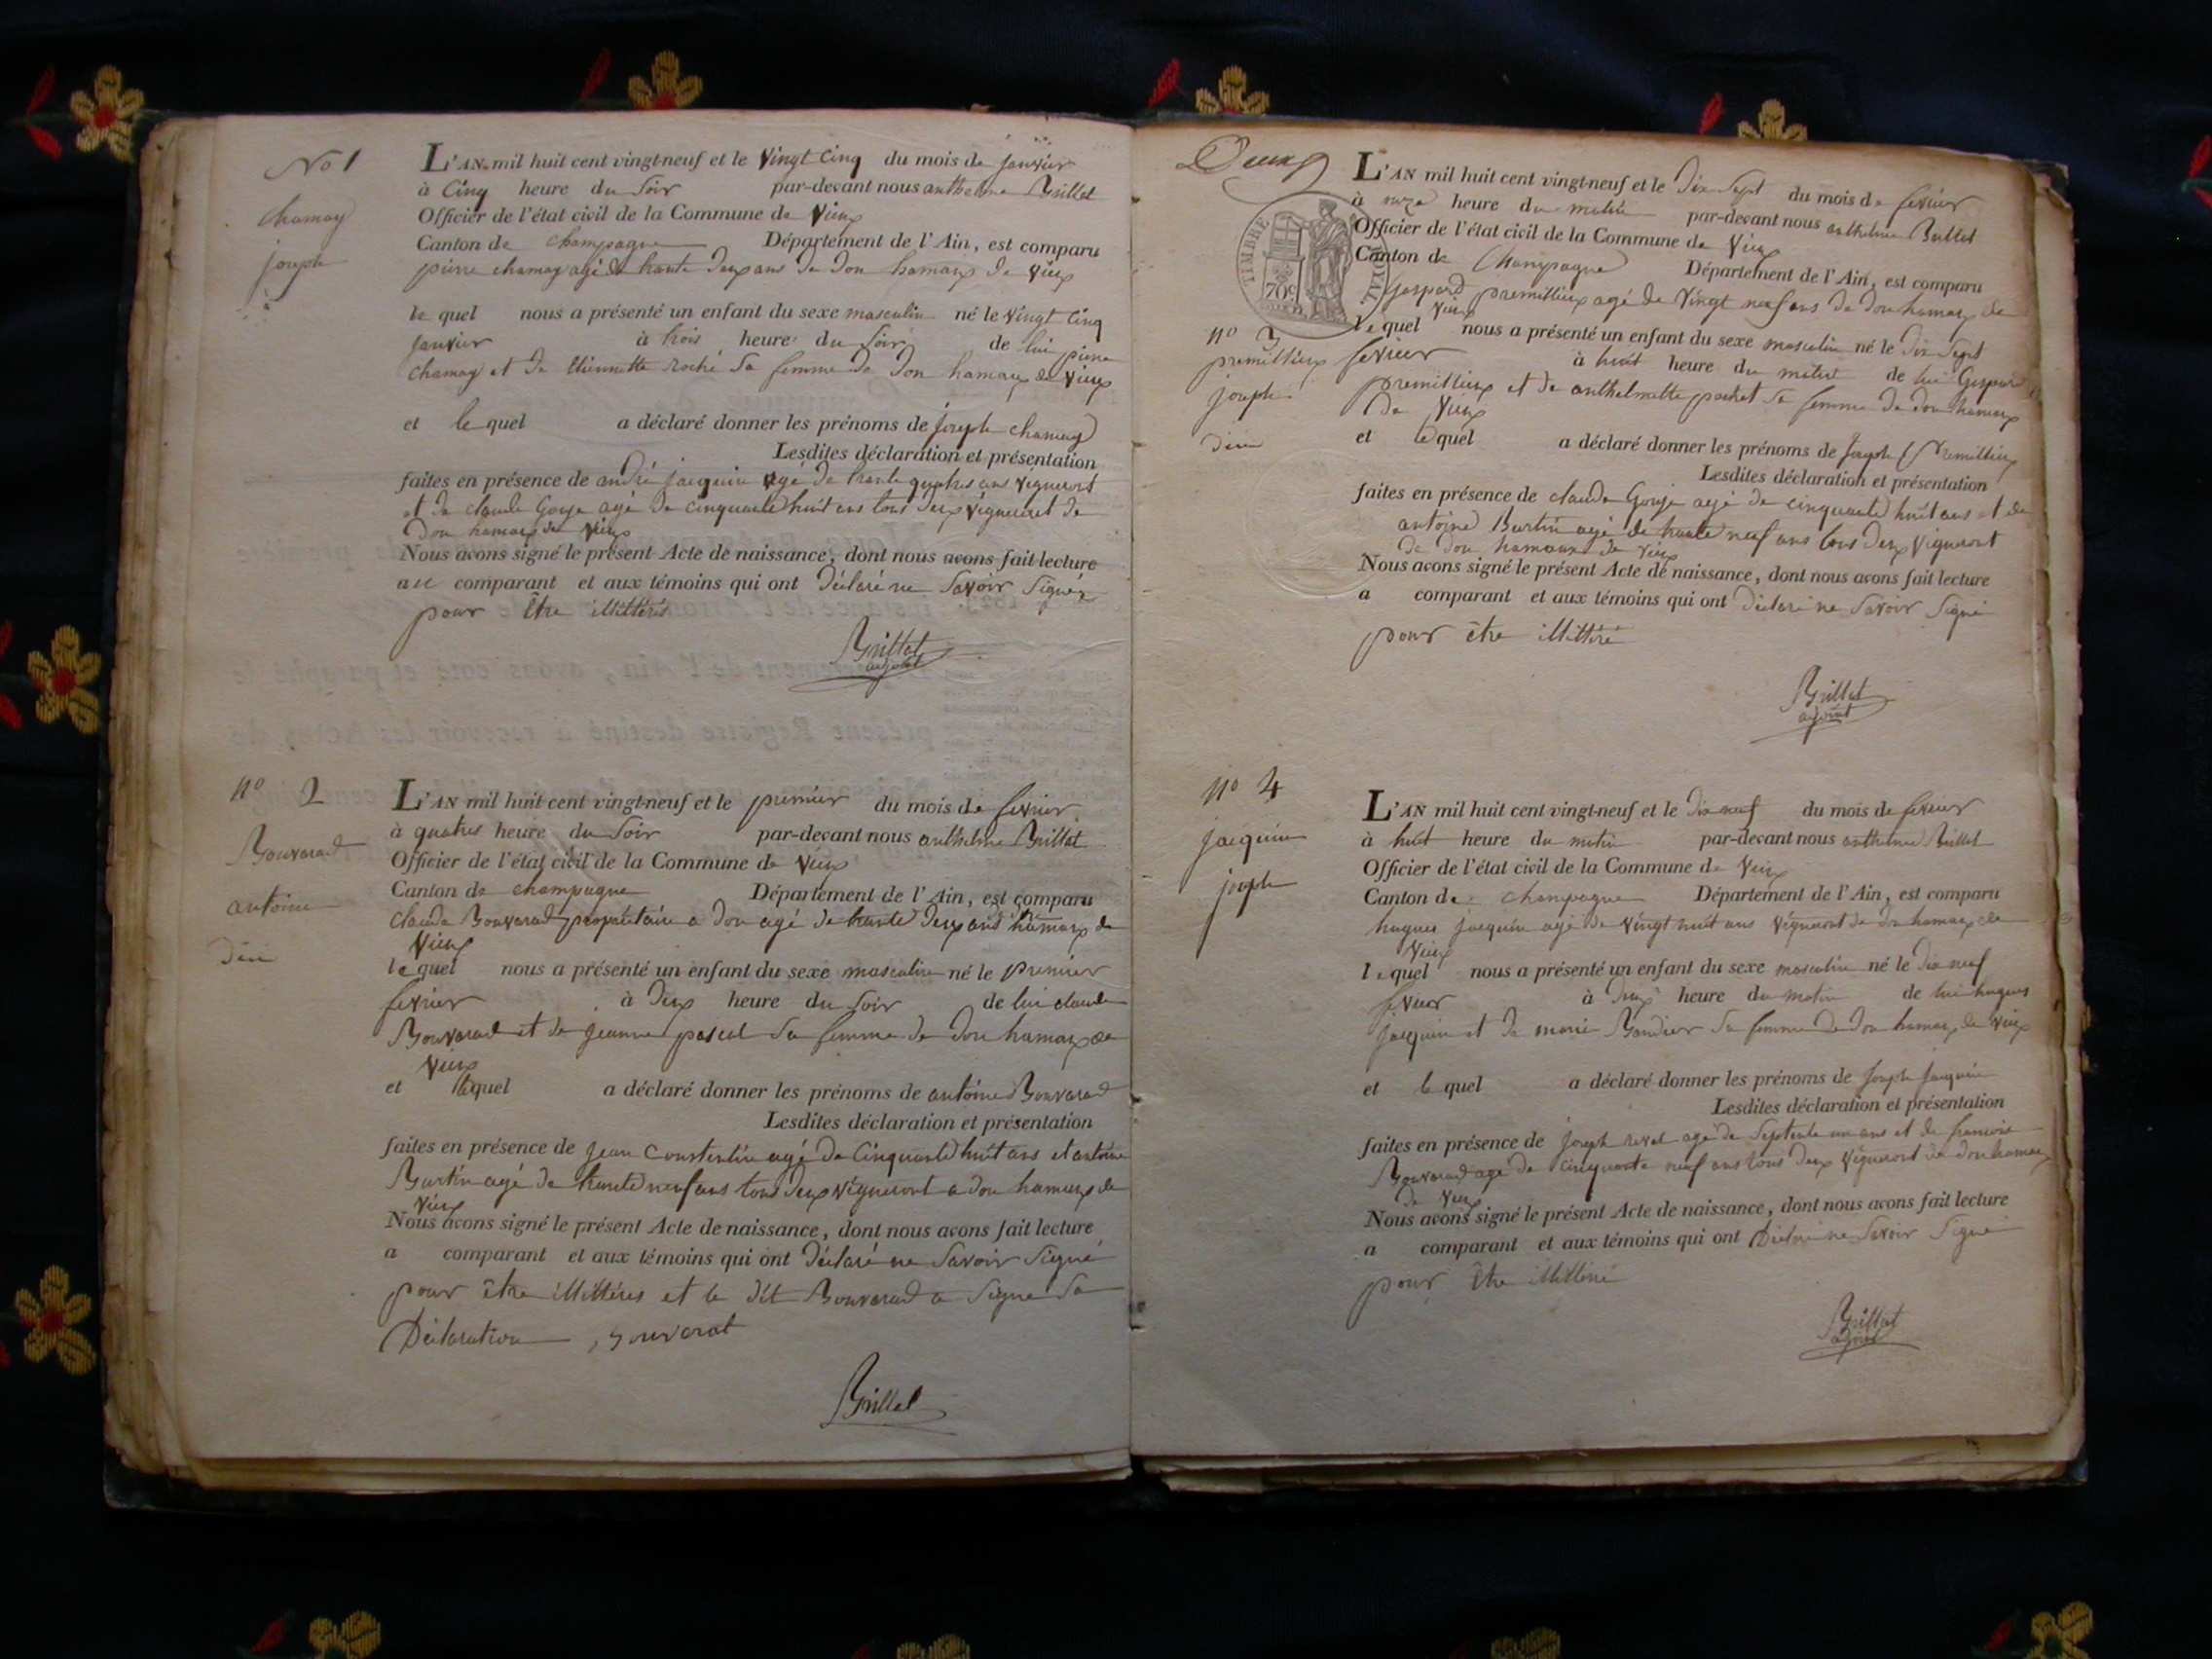 No 1
chamay
joseph
L'AN mil huit cent vingt-neuf et le vingt cinq du mois de janvier
à Cinq heure du soir par-devant nous anthelme Brillat
Officier de l'état civil de la Commune de Vieux
Canton de Champagne Département de l'Ain, est comparu
pierre chamay agé de trante deux ans de don hamaux de vieux
le quel nous a présenté un enfant du sexe masculin né le vingt cinq
janvier à trois heure du soir de lui pierre
chamay et de thiennette roché sa femme de don hamaux de vieux
et le quel a déclaré donner les prénoms de joseph chamay
Lesdites déclaration et présentation
faites en présence de andré jacquin agé de trante quatres ans vigneront
et de claude Gouje agé de cinquante huit ans tous deux vigneront de
don hamaux de vieux
Nous avons signé le présent Acte de naissance, dont nous avons fait lecture
au comparant et aux témoins qui ont déclaré ne savoir signer
pour être illittérés
Brillat
adjoint
no 2
Bouvarad
antoine
L'AN mil huit cent vingt-neuf et le premier du mois de fevrier
à quatres heure du soir par-devant nous anthelme Brillat
Officier de l'état civil de la Commune de Vieux
Canton de champagne Département de l'Ain, est comparu
claude Bouvarad propriétaire a don agé de trante deux ans hamaux de
vieux
lequel nous a présenté un enfant du sexe masculin né le premier
fevrier à deux heure du soir de lui claude
Bouvarad et de jeanne pascal sa femme de don hamaux de
vieux
et lequel a déclaré donner les prénoms de antoine Bouvarad
Lesdites déclaration et présentation
faites en présence de jean Constentin agé de Cinquante huit ans et antoine
Burtin agé de trante neuf ans tous deux vigneront a don hamaux de
vieux
Nous avons signé le présent Acte de naissance, dont nous avons fait lecture
a comparant et aux témoins qui ont déclaré ne savoir signé
pour être illittérés et le dit Bouvarad a signé sa
Déclaration , Bouvarat
Brillat
Deux
TIMBRE ROYAL
70c
no 3
premillieux
joseph
L'AN mil huit cent vingt-neuf et le dix sept du mois de fevrier
à onze heure du matin par-devant nous anthelme Brillat
Officier de l'état civil de la Commune de Vieux
Canton de Champagne Département de l'Ain, est comparu
gaspard premillieux agé de vingt neuf ans de don hamaux de
vieux
lequel nous a présenté un enfant du sexe masculin né le dix sept
fevrier à huit heure du matin de lui Gaspard
premillieux et de anthelmette pochet sa femme de don hamaux
de vieux
et lequel a déclaré donner les prénoms de joseph premillieux
Lesdites déclaration et présentation
faites en présence de claude Gouje agé de cinquante huit ans et de
antoine Burtin agé de trante neuf ans tous deux vigneront
de don hamaux de vieux
Nous avons signé le présent Acte de naissance, dont nous avons fait lecture
a comparant et aux témoins qui ont déclaré ne savoir signé
pour être illittéré
Brillat
adjoint
no 4
jacquin
joseph
L'AN mil huit cent vingt-neuf et le dix neuf du mois de fevrier
à huit heure du matin par-devant nous anthelme Brillat
Officier de l'état civil de la Commune de Vieux
Canton de champagne Département de l'Ain, est comparu
hugues jacquin agé de vingt huit ans vigneront de don hamaux de
vieux
lequel nous a présenté un enfant du sexe masculin né le dix neuf
fevrier à deux heure du matin de lui hugues
jacquin et de marie Bandier sa femme de don hamaux de vieux
et le quel a déclaré donner les prénoms de joseph jacquin
Lesdites déclaration et présentation
faites en présence de joseph revel agé de septente un ans et de francois
Bouvarad agé de cinquante neuf ans tous deux vigneront de don hamaux
de vieux
Nous avons signé le présent Acte de naissance, dont nous avons fait lecture
a comparant et aux témoins qui ont Déclaré ne savoir signé
pour être illittéré
Brillat
adjoint